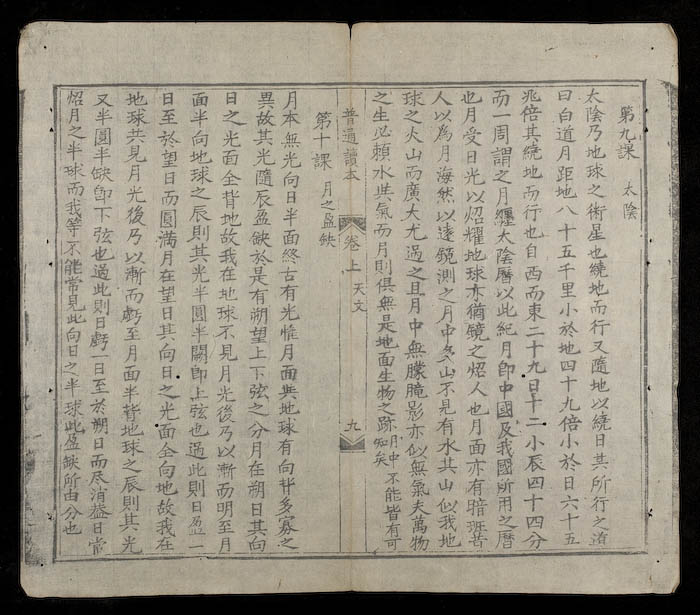 第九課 太陰
太陰乃地球之衛星也繞地而行又隨地以繞日其所行之道
曰白道月距地八十五千里小於地四十九倍小於日六十五
兆倍其繞地而行也自西而東二十九日十二小辰四十四分
而一周謂之月纏太陰曆以此紀月卽中國及我國所用之曆
也月受日光以炤耀地球亦猶鏡之炤人也月面亦有暗班昔
人以爲月海然以遠鏡測之月中多山不見有水其山似我地
球之火山而廣大尤過之且月中無朦朧影亦似無氣夫萬物
之生必賴水與氣而月則俱無是地面生物之跡月中不能皆有可知矣
普通讀本 卷上 天文 九
第十課 月之盈缺
月本無光向日半面終古有光惟月面與地球有向背多寡之
異故其光隨辰盈缺於是有朔望上下弦之分月在朔日其向
日之光面全背地故我在地球不見月光後乃以漸而明至月
面半向地球之辰則其光半圓半闕卽上弦也過此則日盈一
日至於望日而圓滿月在望日其向日之光面全向地故我在
地球共見月光後乃以漸而虧至月面半背地球之辰則其光
又半圓半缺卽下弦也過此則日虧一日至於朔日而尽消蓋日常
炤月之半球而我等不能常見此向日之半球此盈缺所由分也